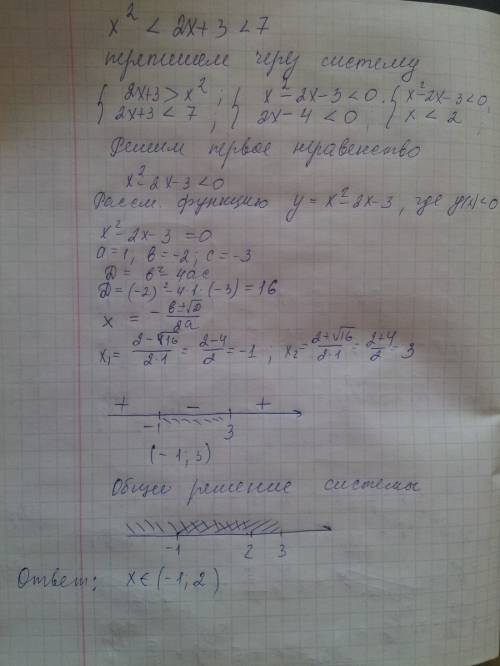 x² < 2x+3 < 7
перепишем через систему
{ 2x+3 > x² ; { x²-2x-3 < 0 . { x²-2x-3 < 0,
2x+3 < 7 , 2x-4 < 0 , x < 2 ;
Решим первое неравенство
x²-2x-3 < 0
Рассм. функцию y = x²-2x-3, где y(x) < 0
x²-2x-3 = 0
a = 1, b = -2; c = -3
D = b²-4ac
D = (-2)²-4·1·(-3) = 16
x = -b±√D/2a
x₁ = 2-√16/2·1 = 2-4/2 = -1 , x₂ = 2+√16/2·1 = 2+4/2 = 3
+ - +
-1 3
(-1; 3)
Общее решение системы
-1 2 3
Ответ: x∈(-1, 2)